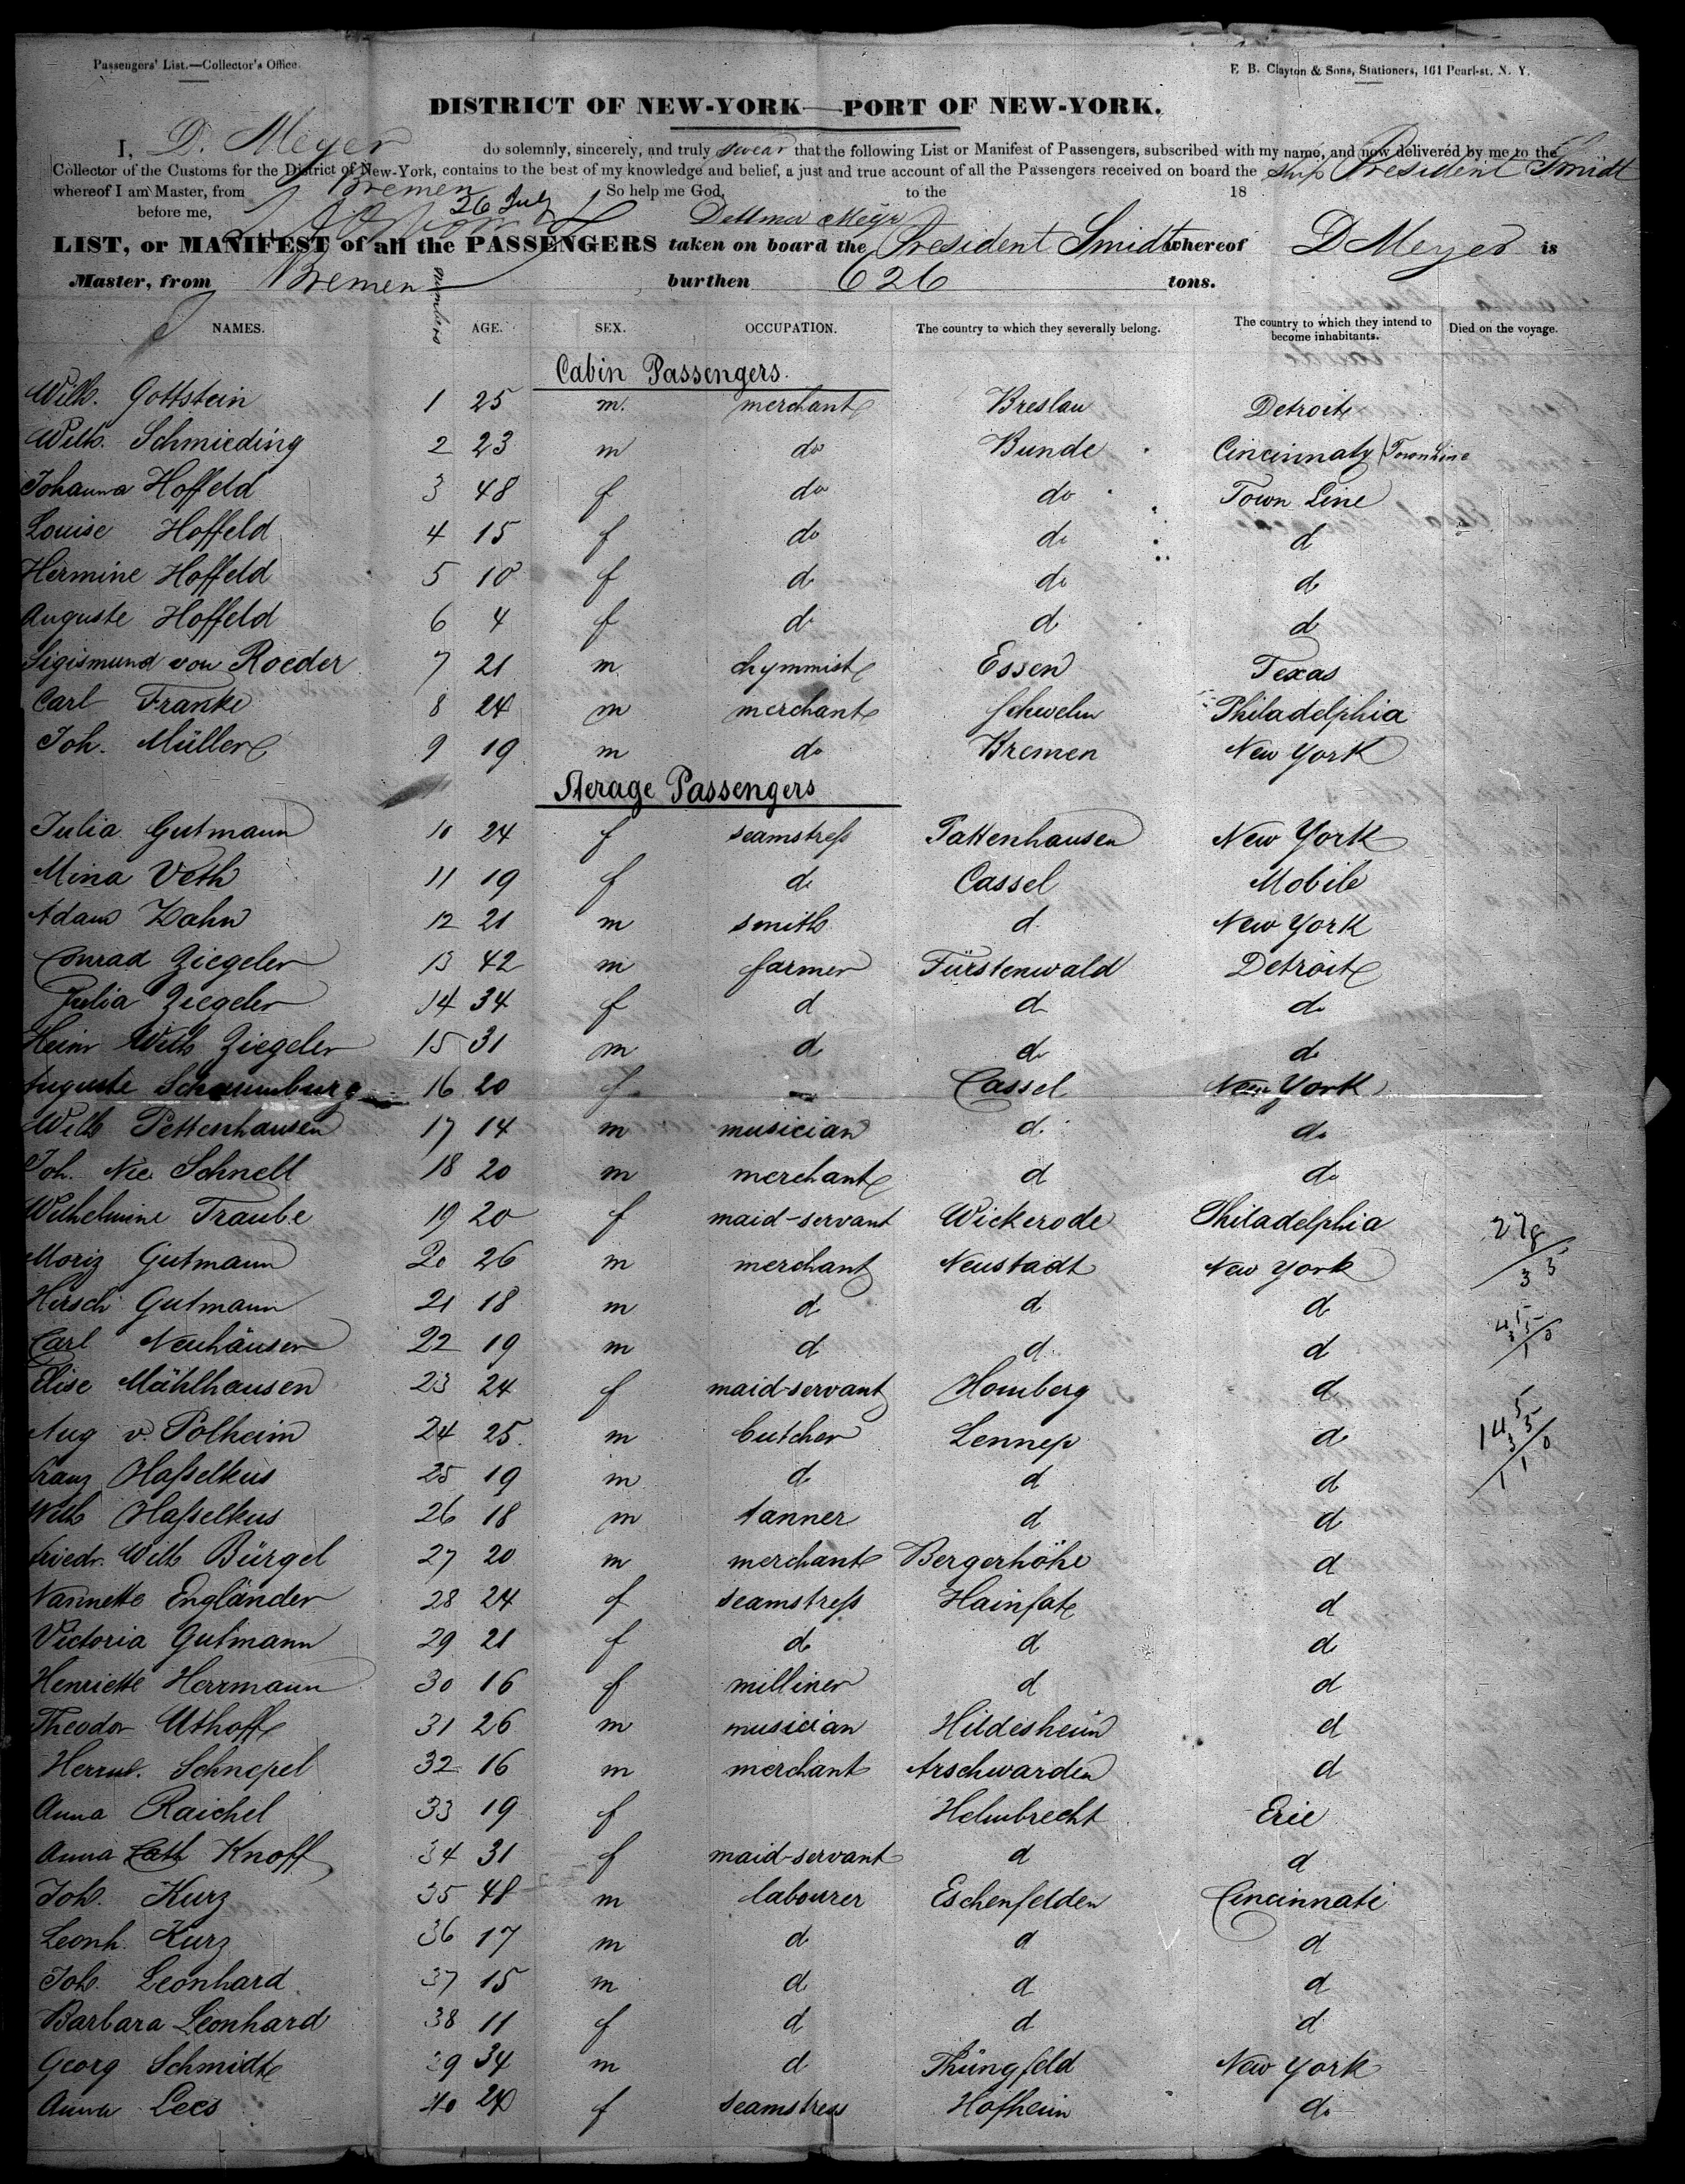 Passengers' List.—Collector's Office.
E. B. Clayton & Sons, Stationers, 161 Pearl-st. N. Y.
DISTRICT OF NEW-YORK—PORT OF NEW-YORK.
I, D. Meyer do solemnly, sincerely, and truly swear that the following List or Manifest of Passengers, subscribed with my name, and now delivered by me to the
Collector of the Customs for the District of New-York, contains to the best of my knowledge and belief, a just and true account of all the Passengers received on board the ship President Smidt
whereof I am Master, from Bremen So help me God, to the 18
before me, 26 July Dettmer Meyer
LIST, or MANIFEST of all the PASSENGERS taken on board the President Smidt whereof D Meyer is
Master, from Bremen burthen 626 tons.
NAMES. numbers AGE. SEX. OCCUPATION. The country to which they severally belong. The country to which they intend to become inhabitants. Died on the voyage.
Cabin Passengers.
Wilh. Gottstein 1 25 m. merchant Breslau Detroit
Wilh. Schmieding 2 23 m do Bunde Cincinnaty / Town Line
Johanna Hoffeld 3 48 f do do Town Line
Louise Hoffeld 4 15 f do do d
Hermine Hoffeld 5 10 f d do do
Auguste Hoffeld 6 4 f d d d
Sigismund von Roeder 7 21 m chymmist Essen Texas
Carl Franke 8 24 m merchant Schwelm Philadelphia
Joh. Müller 9 19 m do Bremen New York
Sterage Passengers
Julia Gutmann 10 24 f seamstress Pattenhausen New York
Mina Veth 11 19 f do Cassel Mobile
Adam Zahn 12 21 m smith d. New York
Conrad Ziegeler 13 42 m farmer Fürstenwald Detroit
Julia Ziegeler 14 34 f d d do
Heinr Wilh Ziegeler 15 31 m d do do
Auguste Schaumburg 16 20 f — Cassel New York
Wilh Pettenhausen 17 14 m musician d. do
Joh. Nic. Schnell 18 20 m merchant d do
Wilhelmine Traube 19 20 f maid-servant Wickerode Philadelphia
Moriz Gutmann 20 26 m merchant Neustadt New York
Hirsch Gutmann 21 18 m d d d
Carl Neuhäuser 22 19 m d d d
Elise Mählhausen 23 24 f maid-servant Homberg d
Aug v. Polheim 24 25. m butcher Lennep d
Franz Hasselkus 25 19 m d d d
Wilh Hasselkus 26 18 m tanner d d
Friedr. Wilh Bürgel 27 20 m merchant Bergerhöhe d
Nannette Engländer 28 24 f seamstress Hainfat d
Victoria Gutmann 29 21 f do d d
Henriette Herrmann 30 16 f milliner d d
Theodor Uthoff 31 26 m musician Hildesheim d
Herm. Schnepel 32 16 m merchant Arschwarden d
Anna Raichel 33 19 f Helmbrecht Erie
Anna Cath Knoff 34 31 f maid-servant d d
Joh. Kurz 35 48 m labourer Eschenfelden Cincinnati
Leonh. Kurz 36 17 m d d d
Joh. Leonhard 37 15 m d d d
Barbara Leonhard 38 11 f d d d
Georg Schmidt 39 34 m d Thüngfeld New York
Anna Lees 40 24 f seamstress Hofheim do